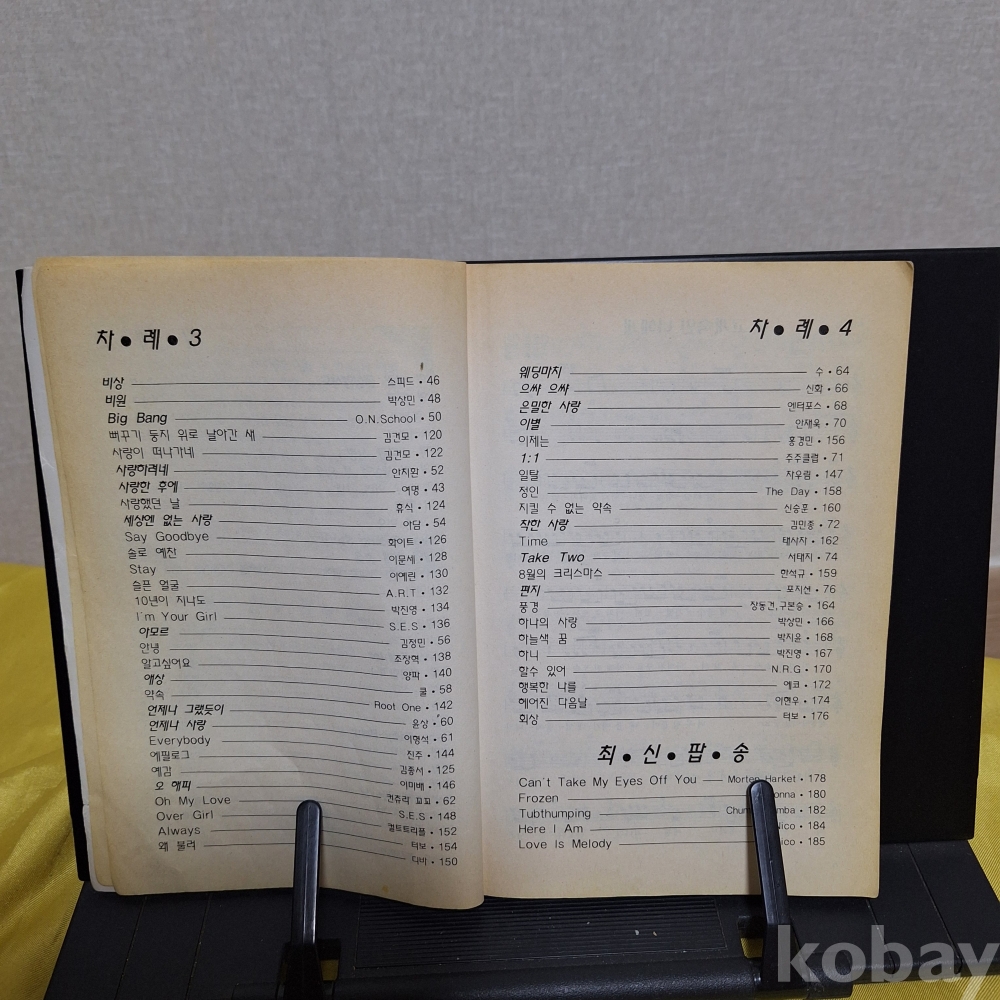 차 • 례 • 3
비상 스피드 • 46
비원 박상민 • 48
Big Bang O.N.School • 50
뻐꾸기 둥지 위로 날아간 새 김건모 • 120
사랑이 떠나가네 김건모 • 122
사랑하려네 안지환 • 52
사랑한 후에 여명 • 43
사랑했던 날 휴식 • 124
세상엔 없는 사랑 아담 • 54
Say Goodbye 화이트 • 126
솔로 예찬 이문세 • 128
Stay 이예린 • 130
슬픈 얼굴 A.R.T • 132
10년이 지나도 박진영 • 134
I'm Your Girl S.E.S • 136
아모르 김정민 • 56
안녕 조장혁 • 138
알고싶어요 양파 • 140
애상 쿨 • 58
약속 Root One • 142
언제나 그랬듯이 윤상 • 60
언제나 사랑 이형석 • 61
Everybody 진주 • 144
에필로그 김종서 • 125
예감 이미배 • 146
오 해피 컨츄리 꼬꼬 • 62
Oh My Love S.E.S • 148
Over Girl • 152
Always 터보 • 154
왜 불러 디바 • 150
차 • 례 • 4
웨딩마치 수 • 64
으쌰 으쌰 신화 • 66
은밀한 사랑 엔터포스 • 68
이별 안재욱 • 70
이제는 홍경민 • 156
1:1 주주클럽 • 71
일탈 자우림 • 147
정인 The Day • 158
지킬 수 없는 약속 신승훈 • 160
착한 사랑 김민종 • 72
Time 태사자 • 162
Take Two 서태지 • 74
8월의 크리스마스 한석규 • 159
편지 포지션 • 76
풍경 장동건,구본승 • 164
하나의 사랑 박상민 • 166
하늘색 꿈 박지윤 • 168
하니 박진영 • 167
할수 있어 N.R.G • 170
행복한 나를 에코 • 172
헤어진 다음날 이현우 • 174
회상 터보 • 176
최 • 신 • 팝 • 송
Can't Take My Eyes Off You Morten Harket • 178
Frozen onna • 180
Tubthumping Chum mba • 182
Here I Am Nico • 184
Love Is Melody ico • 185
kobay